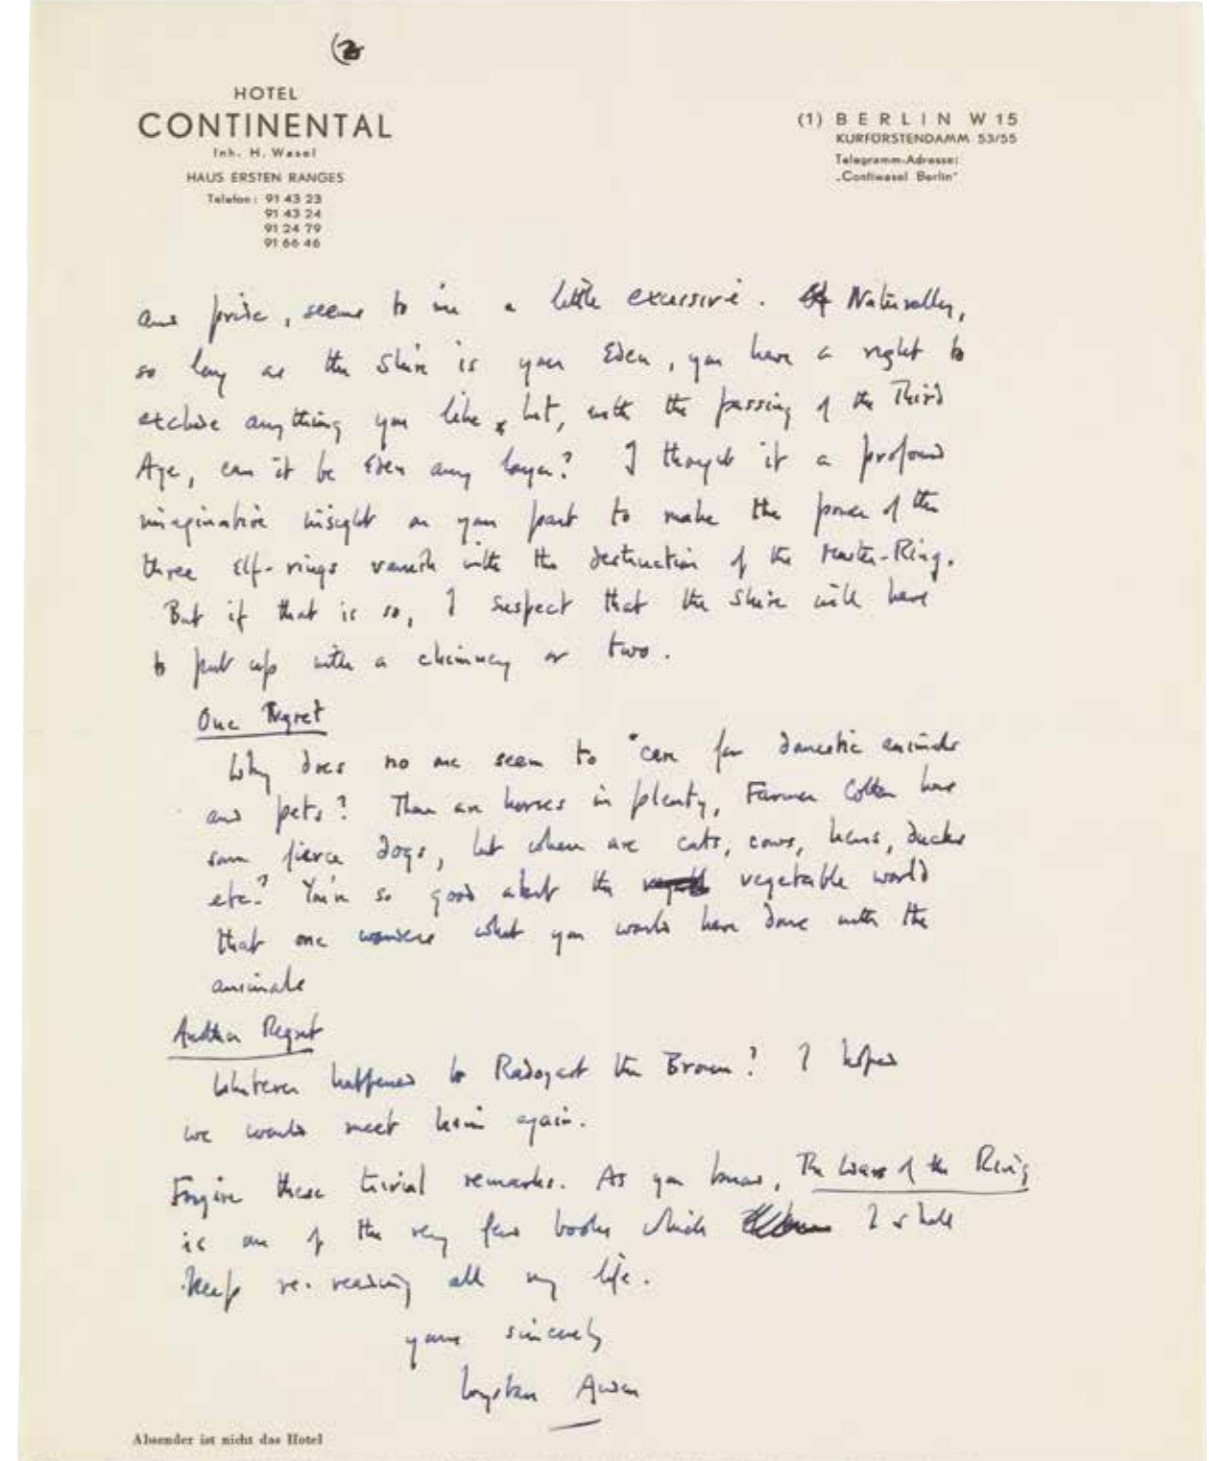 (2
HOTEL
CONTINENTAL
Inh. H. Wasel
HAUS ERSTEN RANGES
Telefon: 91 43 23
91 43 24
91 24 79
91 66 46
(1) BERLIN W 15
KURFÜRSTENDAMM 53/55
Telegramm-Adresse:
„Contiwasel Berlin"
and pride, seems to me a little excessive. Naturally,
so long as the Shire is your Eden, you have a right to
exclude anything you like, but, with the passing of the Third
Age, can it be Eden any longer? I thought it a profound
imaginative insight on your part to make the power of the
three Elf-rings vanish with the destruction of the Master-Ring.
But if that is so, I suspect that the Shire will have
to put up with a chimney or two.
One Regret
Why does no one seem to care for domestic animals
and pets? There are horses in plenty, Farmer Cotton has
some fierce dogs, but where are cats, cows, hens, ducks
etc? You're so good about the vegetable world
that one wonders what you would have done with the
animals
Another Regret
Whatever happened to Radogast the Brown? I hoped
we would meet him again.
Forgive these trivial remarks. As you know, The Wars of the Ring
is one of the very few books which I shall
keep re-reading all my life.
yours sincerely
Wystan Auden
Absender ist nicht das Hotel